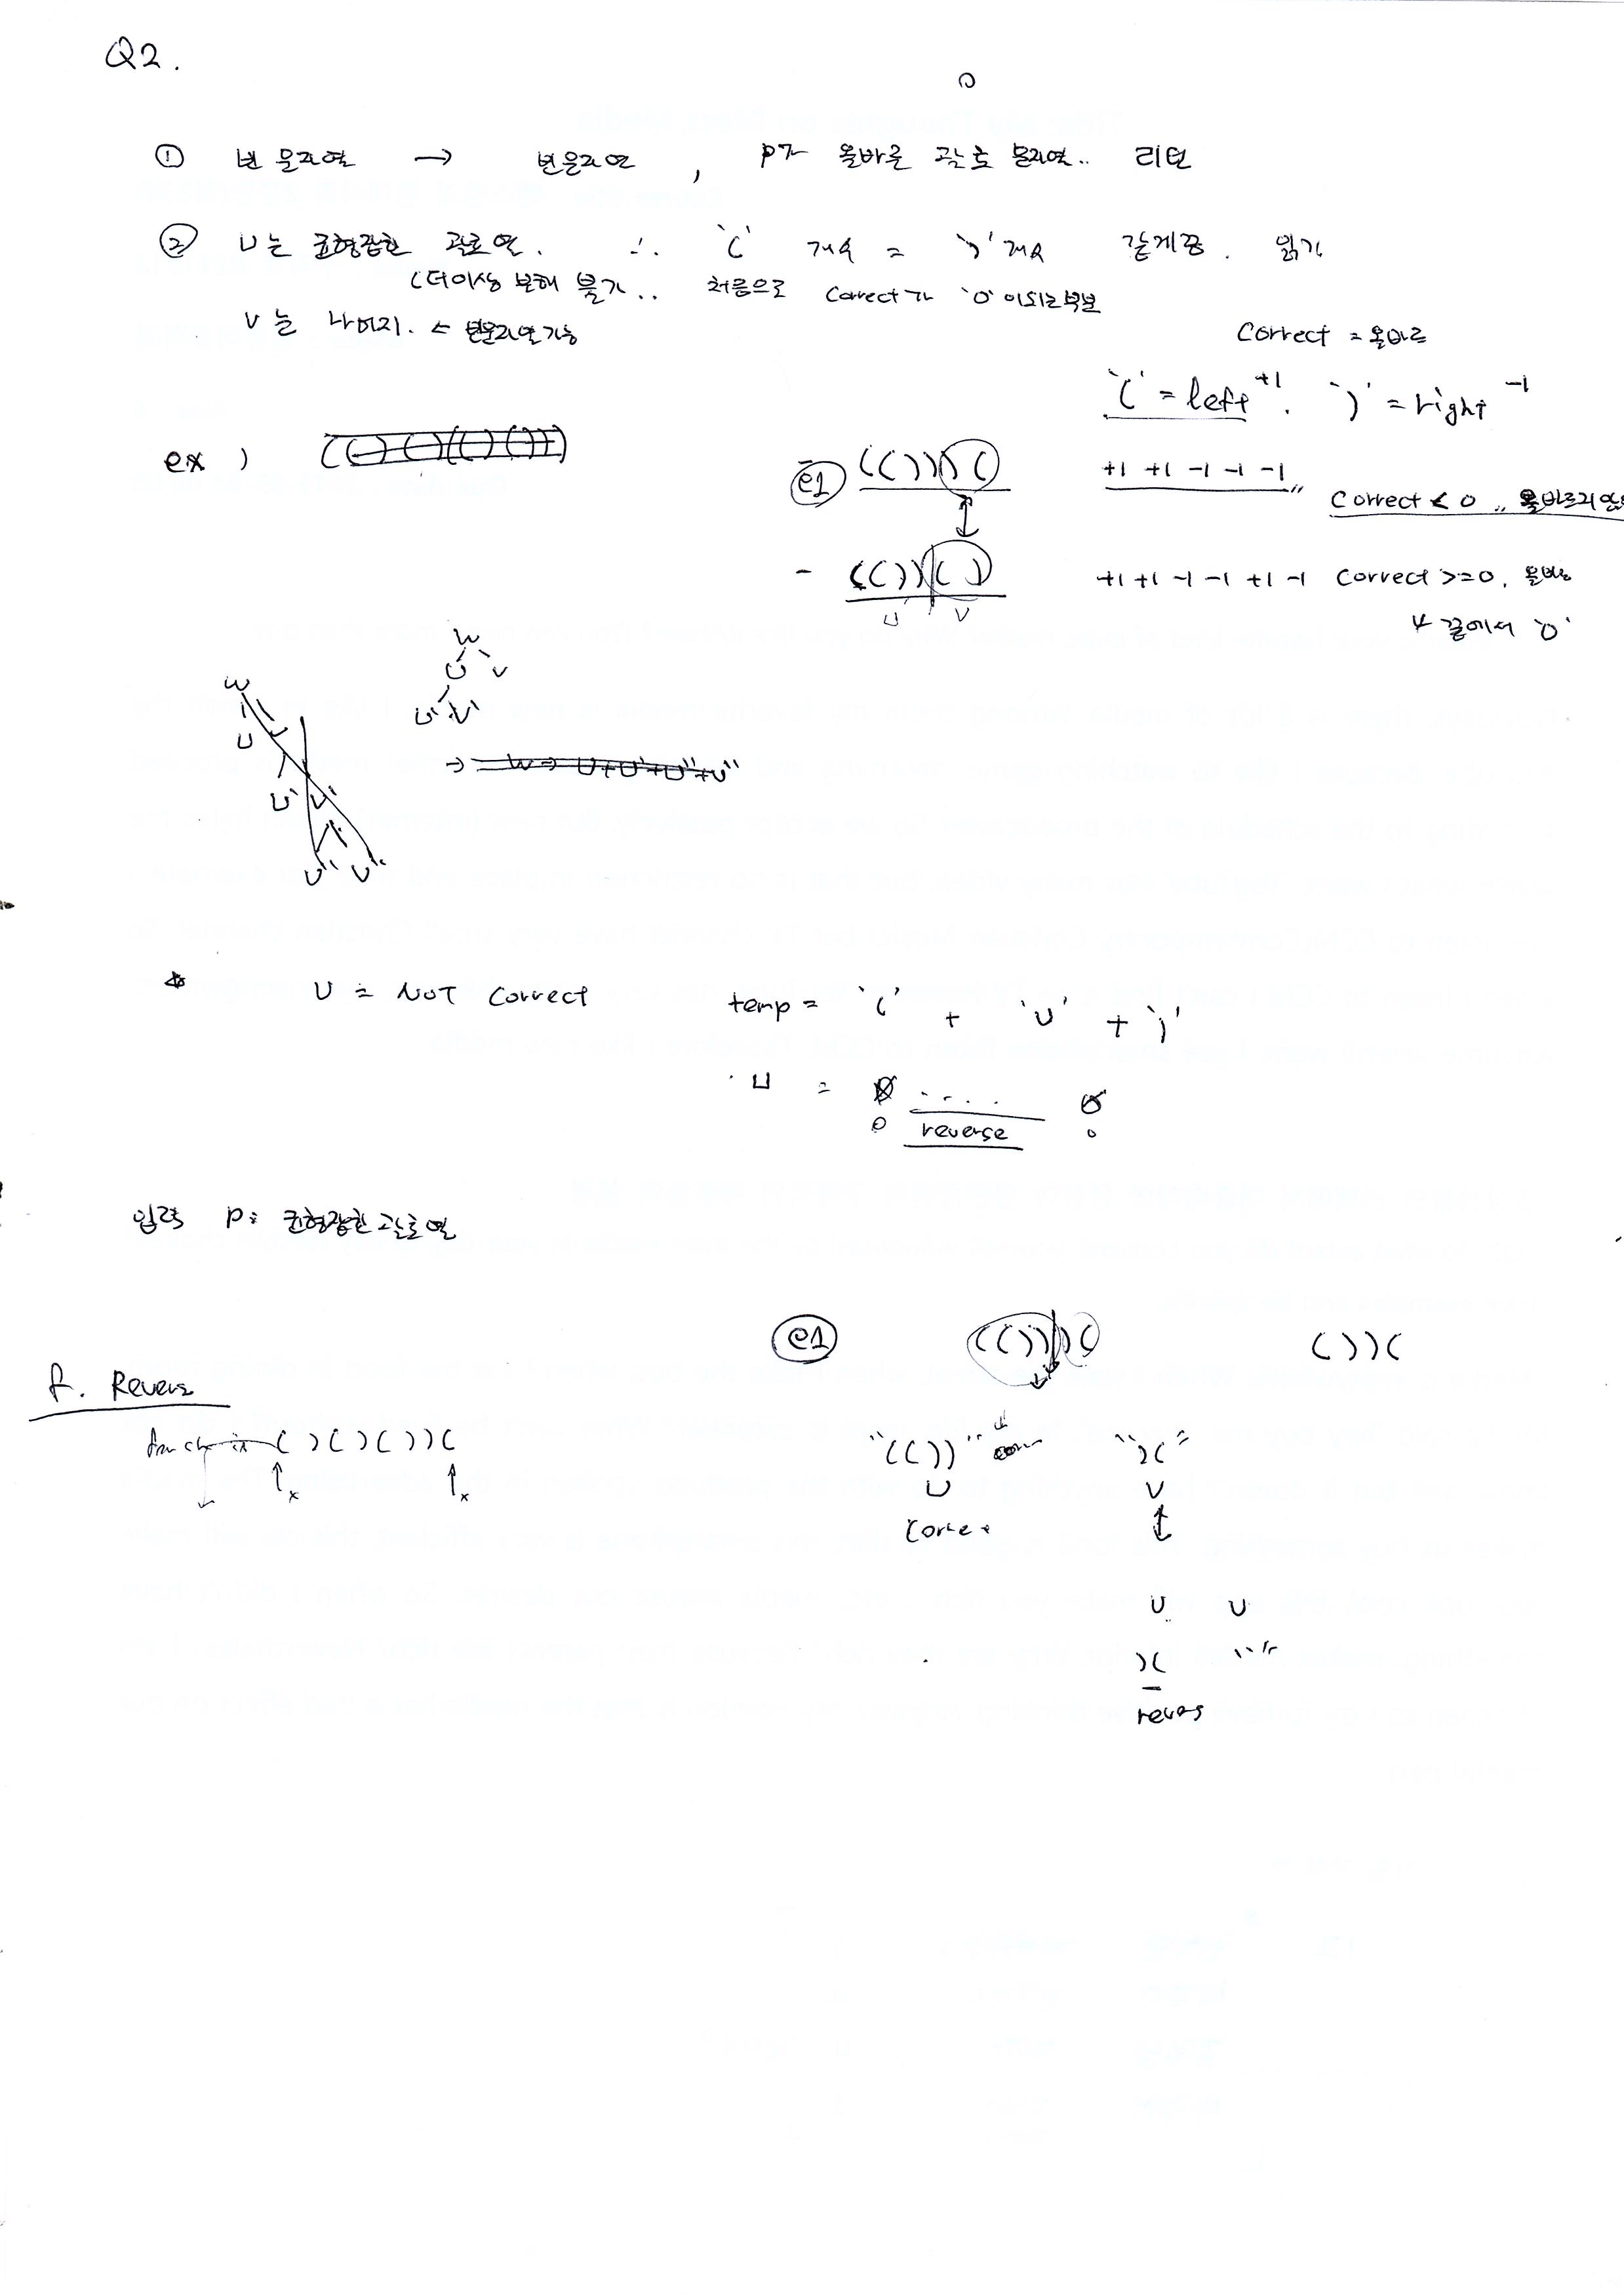 Q2.
① 빈 문자열 → 빈문자열 , P가 올바른 괄호 문자열.. 리턴
② U는 균형잡힌 괄호열. ∴ '(' 개수 = ')' 개수 같게끔. 읽기
(더이상 분해 불가.. 처음으로 Correct가 '0'이되는부분
V는 나머지. ← 빈문자열가능
Correct = 올바른
'(' = left +1. ')' = right -1
ex )
e1 (()))( +1 +1 -1 -1 -1 ,, Correct < 0 ,, 올바르지않
- (())() +1 +1 -1 -1 +1 -1 Correct >=0,
U V
↳ 끝에서 '0'
W
U V
U' V'
W
U V
U' V'
U'' V''
→ W → U+U'+U''+V''
* U = NOT Correct temp = '(' + 'U' + ')'
U = ....
reverse
입력 P: 균형잡힌 괄호열
e1 (()))( ())(
f. Revers
for ch in ()()())(
"(())" ")("
U V
U V
)( ""
revers